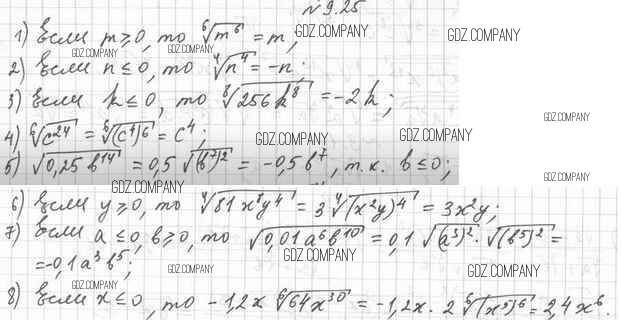 № 9.25
1) Если m ≥ 0, то ⁶√m⁶ = m;
2) Если n ≤ 0, то ⁴√n⁴ = -n;
3) Если k ≤ 0, то ⁸√256k⁸ = -2k;
4) ⁶√c²⁴ = ⁶√(c⁴)⁶ = c⁴;
5) √0,25b¹⁴ = 0,5√(b⁷)² = -0,5b⁷, т.к. b ≤ 0;
6) Если y ≥ 0, то ⁴√81x⁸y⁴ = 3⁴√(x²y)⁴ = 3x²y;
7) Если a ≤ 0, b ≥ 0, то √0,01a⁶b¹⁰ = 0,1√(a³)² · √(b⁵)² =
= -0,1a³b⁵;
8) Если x ≤ 0, то -1,2x ⁶√64x³⁰ = -1,2x · 2 ⁶√(x⁵)⁶ = 2,4x⁶.
GDZ.COMPANY
GDZ.COMPANY
GDZ.COMPANY
GDZ.COMPANY
GDZ.COMPANY
GDZ.COMPANY
GDZ.COMPANY
GDZ.COMPANY
GDZ.COMPANY
GDZ.COMPANY
GDZ.COMPANY
GDZ.COMPANY
GDZ.COMPANY